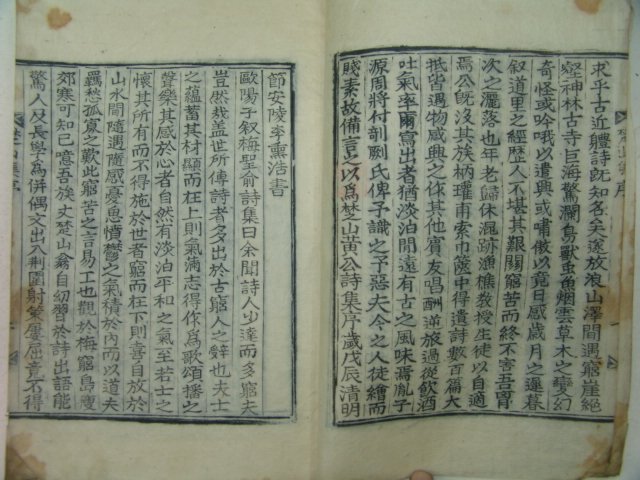 求乎古近體詩旣知名矣遂放浪山澤間遇窮崖絕
壑神林古寺巨海驚瀾鳥獸虫魚烟雲草木之變幻
奇怪或吟哦以遣興或嘯傲以竟日感歲月之遲暮
叙道里之經歷人不堪其艱關窮苦而終不害吾胷
次之灑落也年老歸休混跡漁樵敎授生徒以自適
焉公旣沒其族枘瓘甫索巾篋中得遺詩數百篇大
抵皆遇物感興之作其他賓友唱酬逆旅過從飮酒
吐氣率爾寫出者猶淡泊閒遠有古之風味焉胤子
源周將付剞劂氏俾予識之予惡夫今之人徒繪而
賤素故備言之以爲楚山黃公詩集序歲戊辰淸明
節安陵李熏浩書
歐陽子叙梅聖兪詩集曰余聞詩人少達而多窮夫
豈然哉盖世所傳詩者多出於古窮人之辭也夫士
之蘊蓄其材顯而在上則氣滿志得作爲歌頌播之
聲樂其感於心者自然有淡泊平和之氣至若士之
懷其所有而不得施於世者窮而在下則喜自放於
山水間隨遇隨感憂思憤鬱之氣積於內而以道夫
羈愁孤寡之歎此窮苦之言易工也觀於梅窮島瘦
郊寒可知已噫吾族丈楚山翁自幼習於詩出語能
驚人及長學爲倂偶文出入荆圍射策屢屈竟不得